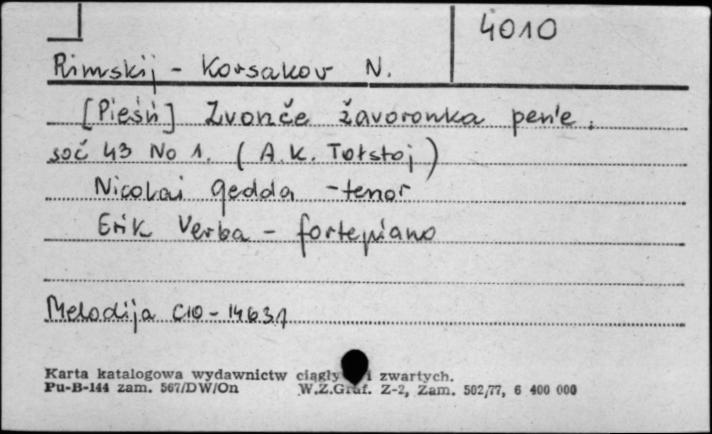 4010
Rimskij - Korsakov N.
[Pieśń] Zvonče žavoronka pen'e.
soč 43 No 1. (A.K. Tołstoj)
Nicolai Gedda - tenor
Erik Verba - fortepiano
Melodija C10-14631
Karta katalogowa wydawnictw ciągły i zwartych.
Pu-B-144 zam. 567/DW/On W.Z.Graf. Z-2, Zam. 502/77, 6 400 000